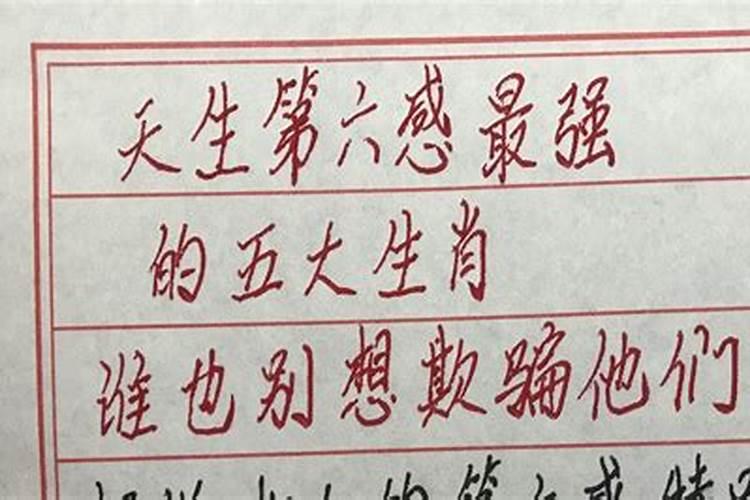 天生第六感最强
的五大生肖
谁也别想欺骗他们